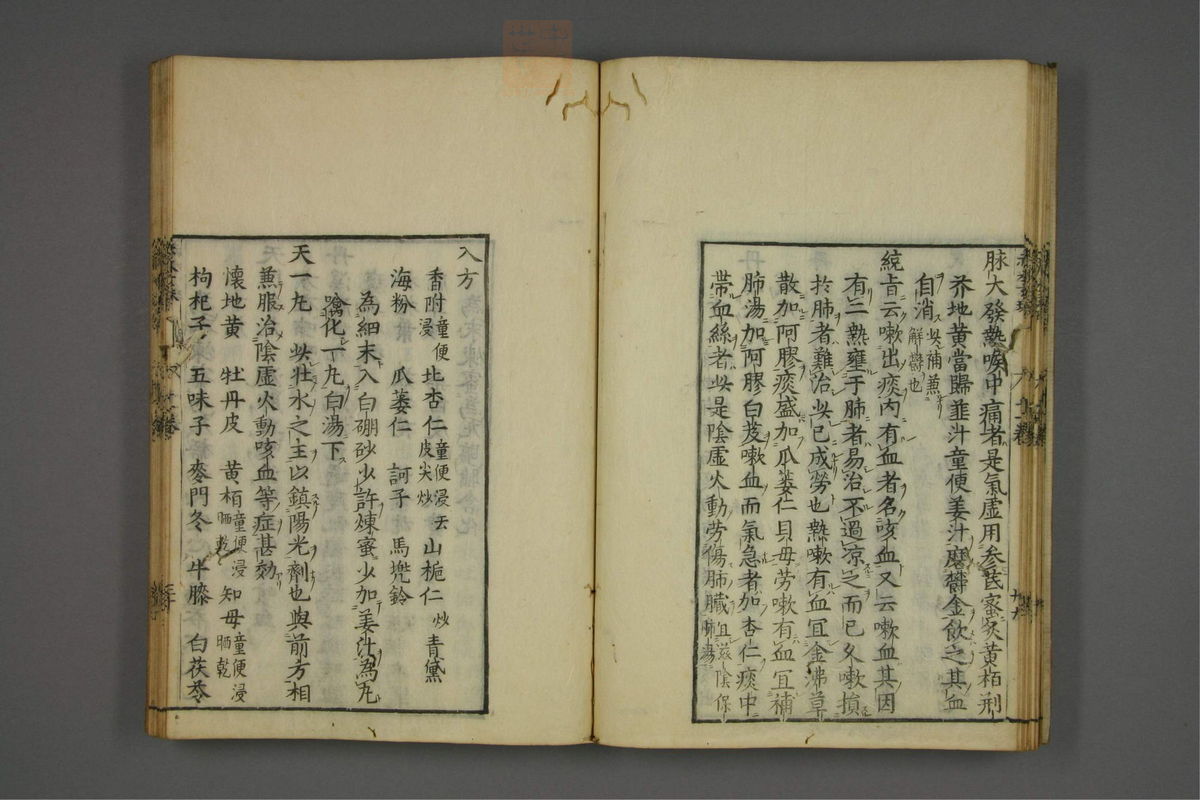 脉大發熱喉中痛者是氣虛用参芪蜜炙黄栢荆
芥地黄當歸韮汁童便姜汁磨欝金飲之其血
自消此補兼解欝也
統旨云嗽出痰内有血者名咳血又云嗽血其因
有二熱壅于肺者易治不過凉之而已久嗽損
於肺者難治此已成勞也熱嗽有血宜金沸草
散加阿膠痰盛加瓜蔞仁貝母勞嗽有血宜補
肺湯加阿膠白芨嗽血而氣急者加杏仁痰中
帶血絲者此是陰虛火動勞傷肺臓宜滋陰保肺湯
入方
香附童便浸 北杏仁童便浸去皮尖炒 山梔仁炒 青黛
海粉 瓜蔞仁 訶子 馬兠鈴
為細末入白硼砂少許煉蜜少加姜汁為丸
噙化一丸白湯下
天一丸 此壮水之主以鎮陽光劑也與前方相
兼服治陰虛火動咳血等症甚効
懷地黄 牡丹皮 黄栢童便浸晒乾 知母童便浸晒乾
枸杞子 五味子 麥門冬 牛膝 白茯苓